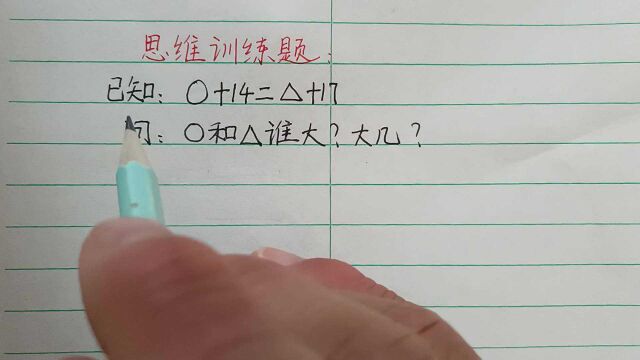 思维训练题:
已知: ○+14=△+17
问: ○和△谁大?大几?